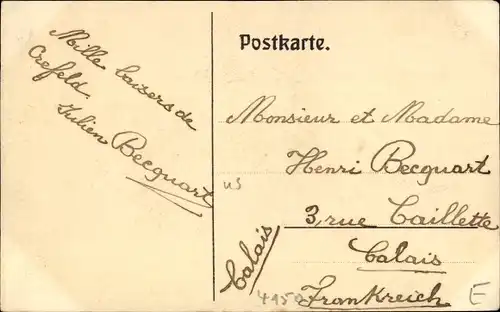 Mille baisers de
Crefeld
Julien Becquart
Postkarte.
Monsieur et Madame
Henri Becquart
3, rue Caillette
Calais
Calais
Frankreich
4150
E